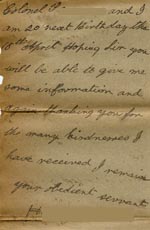 Colonel P- and I
am 20 next Birthday the
15th April Hoping Sir you
will be able to give me
some information and
again thanking you for
the many kindnesses I
have received I remain
your obedient servant
H